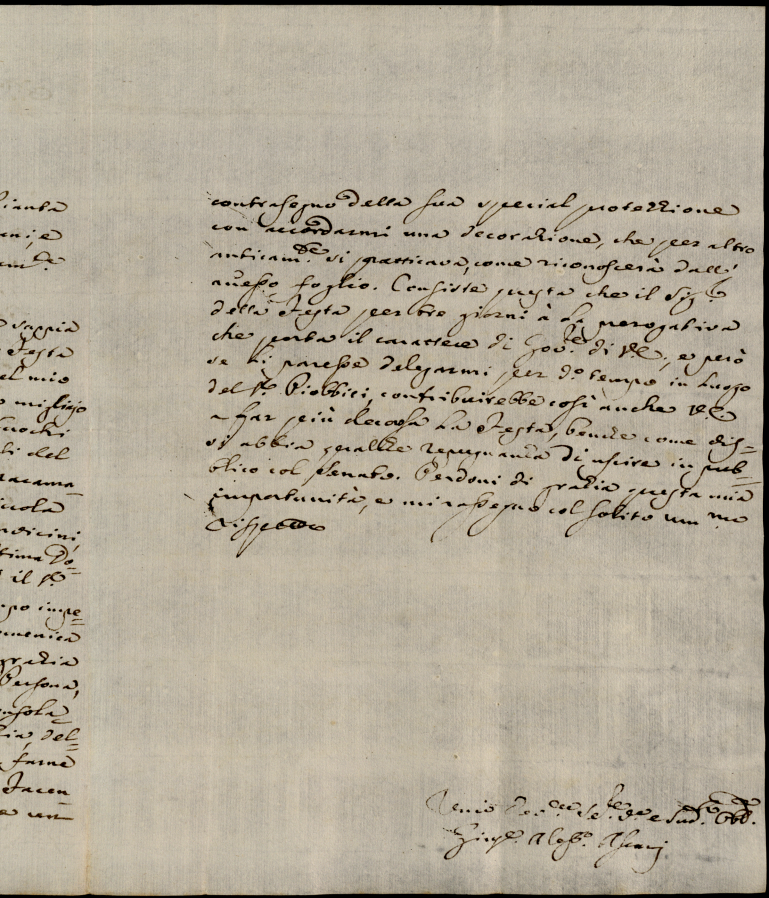 ianta
ani, e
am.te
sappia
Festa
el mio
miglio
uochi
ti del
racama-
icola
ndicini
tima Do=
il S.r
po impe=
omenica
grazia
Persona,
nsola
ia, del=
farne
Facen=
contrasegno della sua special protezzione
con accordarmi una decorazione, che per altro
anticam.te si pratticava, come riconoscerà dall'
annesso foglio. Consiste questa che il Sig.re
della Festa per tre giorni à la prerogativa
che porta il carattere di Gov.re di V.E., e però
se si paresse delegarmi per d.o tempo in luogo
del S.r Piobbici, contribuirebbe così anche V.E.
a far più decorosa la Festa, benche come dis=
si abbia qualche repugnanza di uscire in pub=
blico col Senato. Perdoni di grazia questa mia
importunità, e mi rassegno col solito um.mo
rispetto